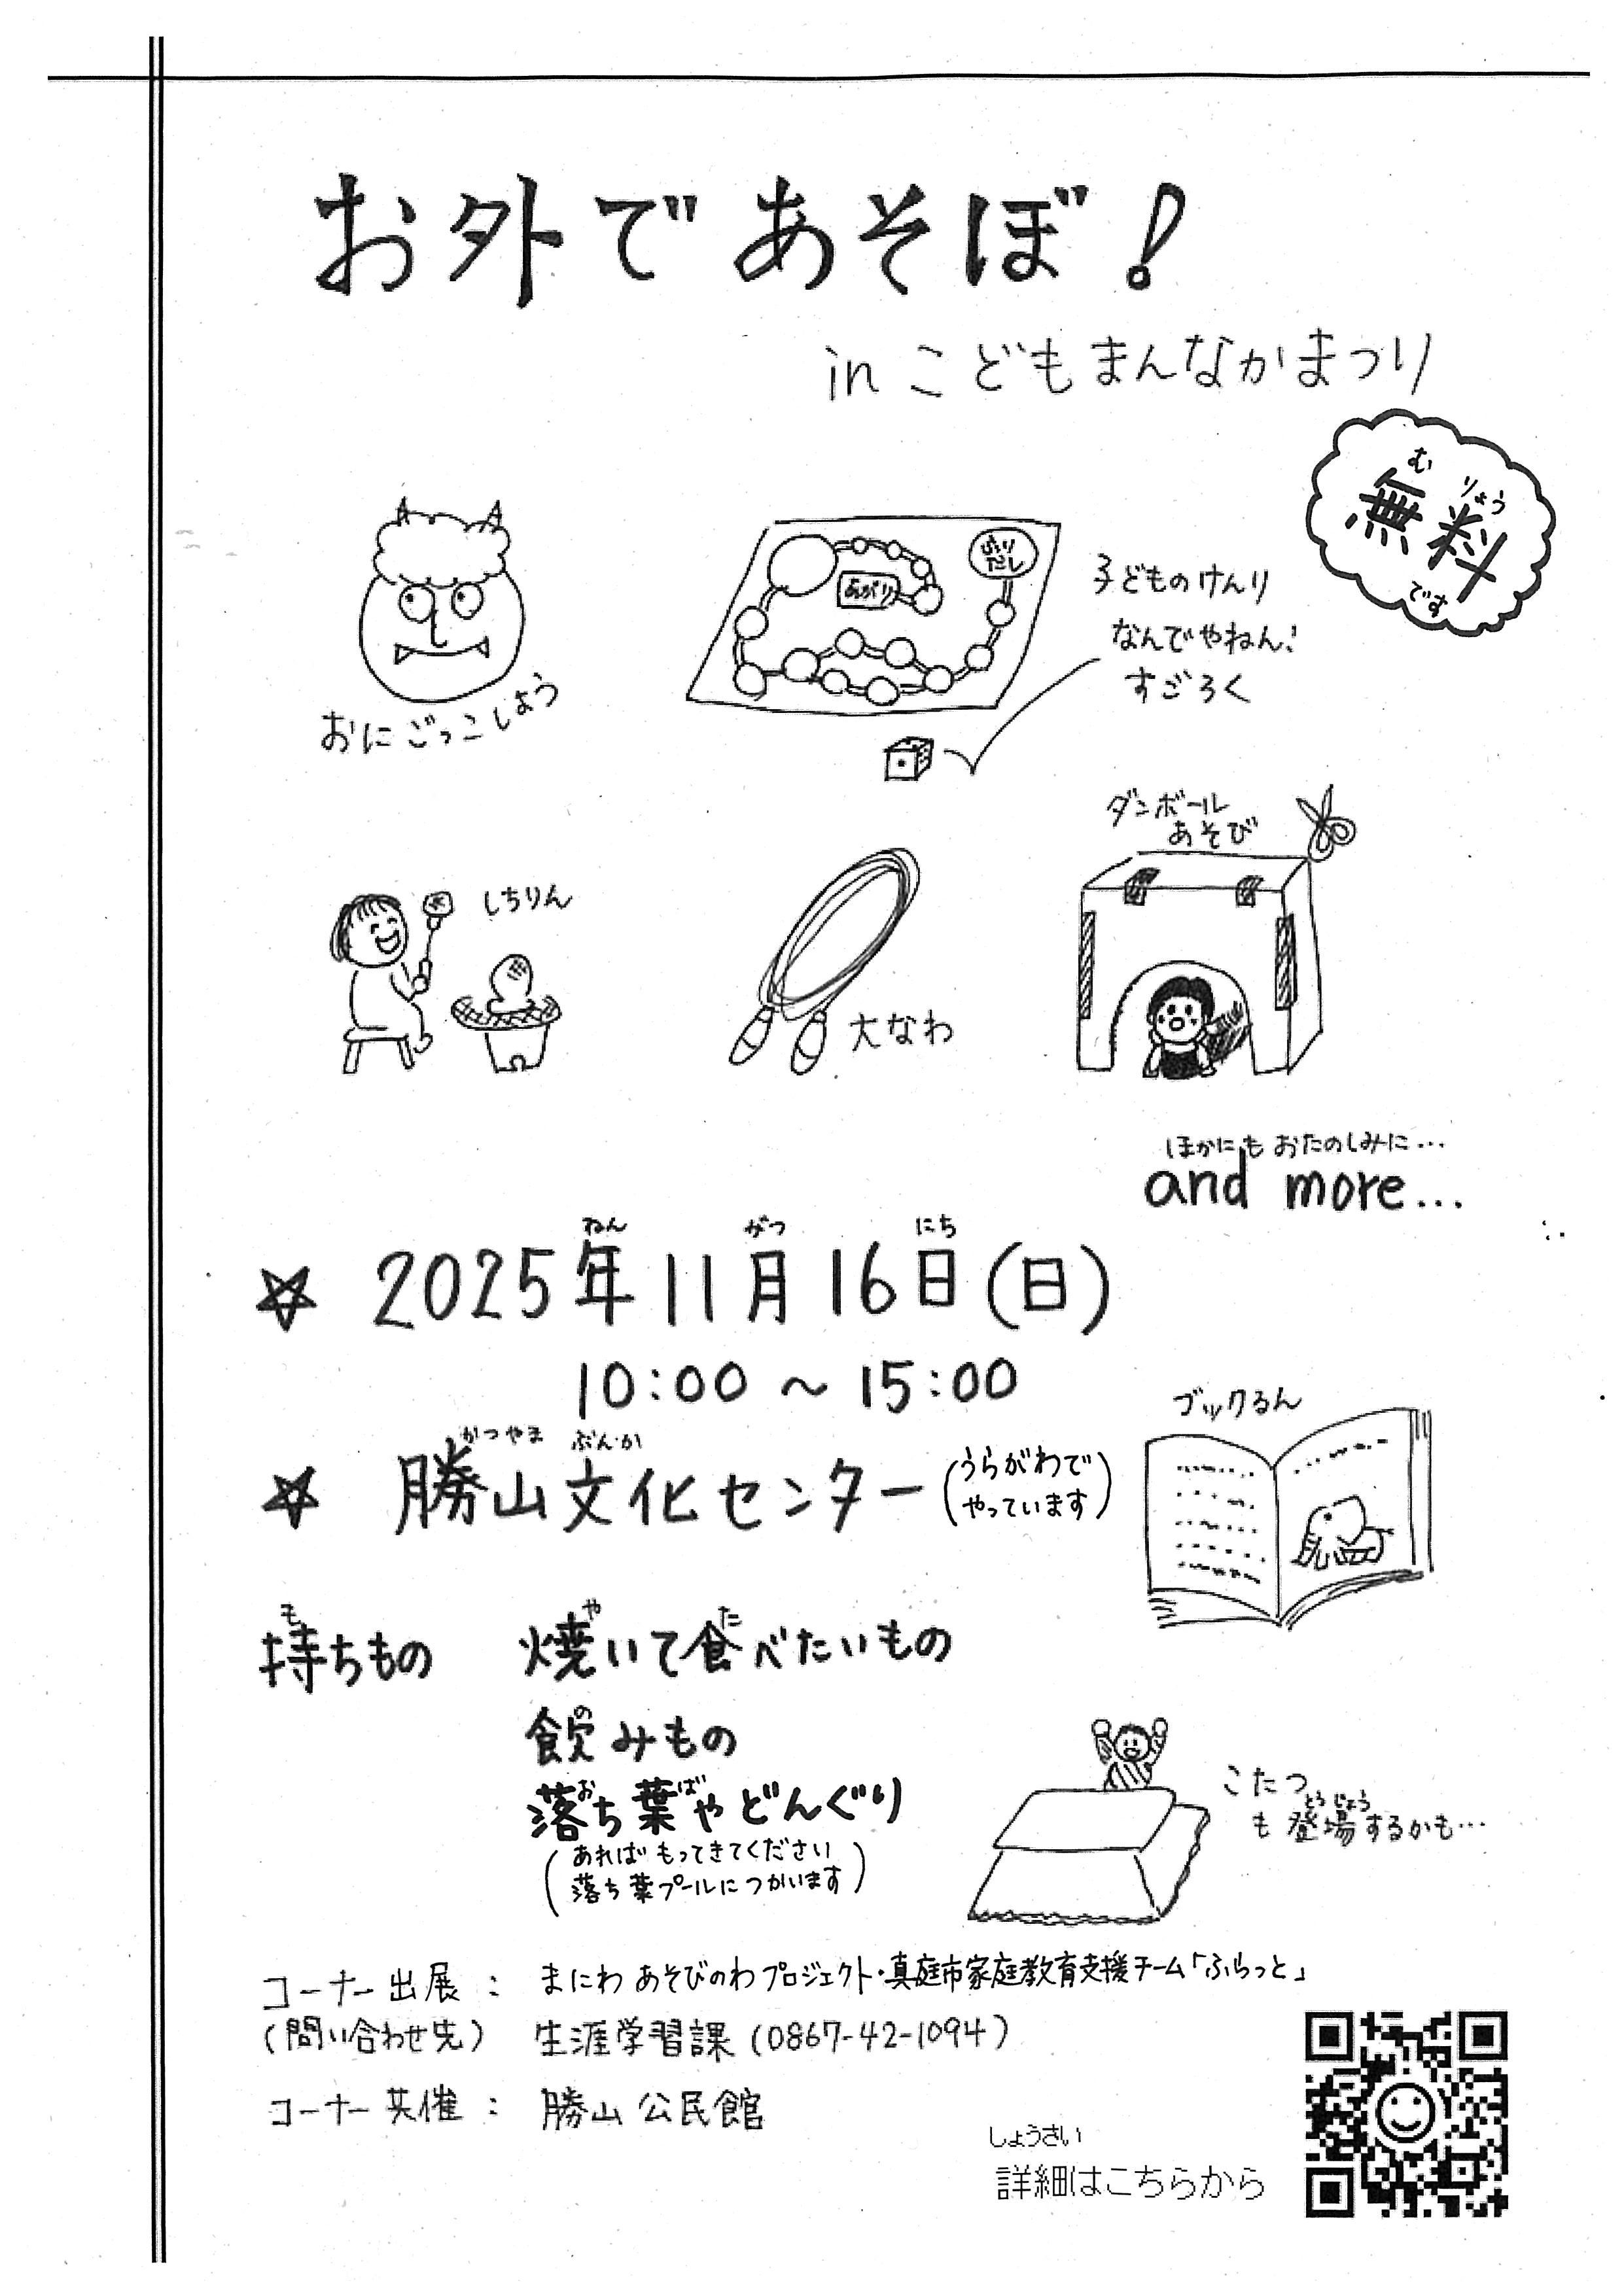 お外であそぼ!
in こどもまんなかまつり
む りょう
無料
です
おにごっこしよう
ふり
だし
あがり
子どものけんり
なんでやねん!
すごろく
しちりん
大なわ
ダンボール
あそび
ほかにも おたのしみに…
and more…
ねん がつ にち
☆ 2025年11月16日(日)
10:00 ~ 15:00
かつやま ぶんか
☆ 勝山文化センター(うらがわで
やっています)
ブックるん
も や た
持ちもの 焼いて食べたいもの
の
飲みもの
お ば
落ち葉やどんぐり
(あれば もってきてください
落ち葉プールにつかいます)
こたつ
とうじょう
も登場するかも…
コーナー出展: まにわ あそびのわプロジェクト・真庭市家庭教育支援チーム「ふらっと」
(問い合わせ先) 生涯学習課(0867-42-1094)
コーナー共催: 勝山公民館
しょうさい
詳細はこちらから